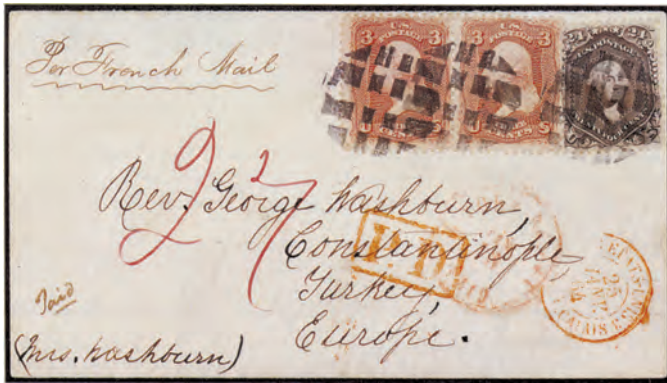 Per French Mail
3 U.S. POSTAGE 3
3 U.S. POSTAGE 3
24 U.S. POSTAGE 24
27
Rev. George Washburn,
Constantinople,
Turkey,
Europe.
P.D.
25
CALAIS
Paid
(Mrs. Washburn)